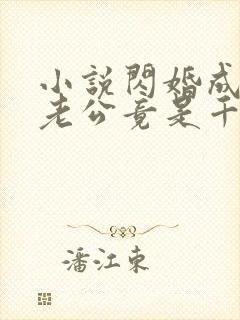 小說閃婚成
老公竟是千
潘江東